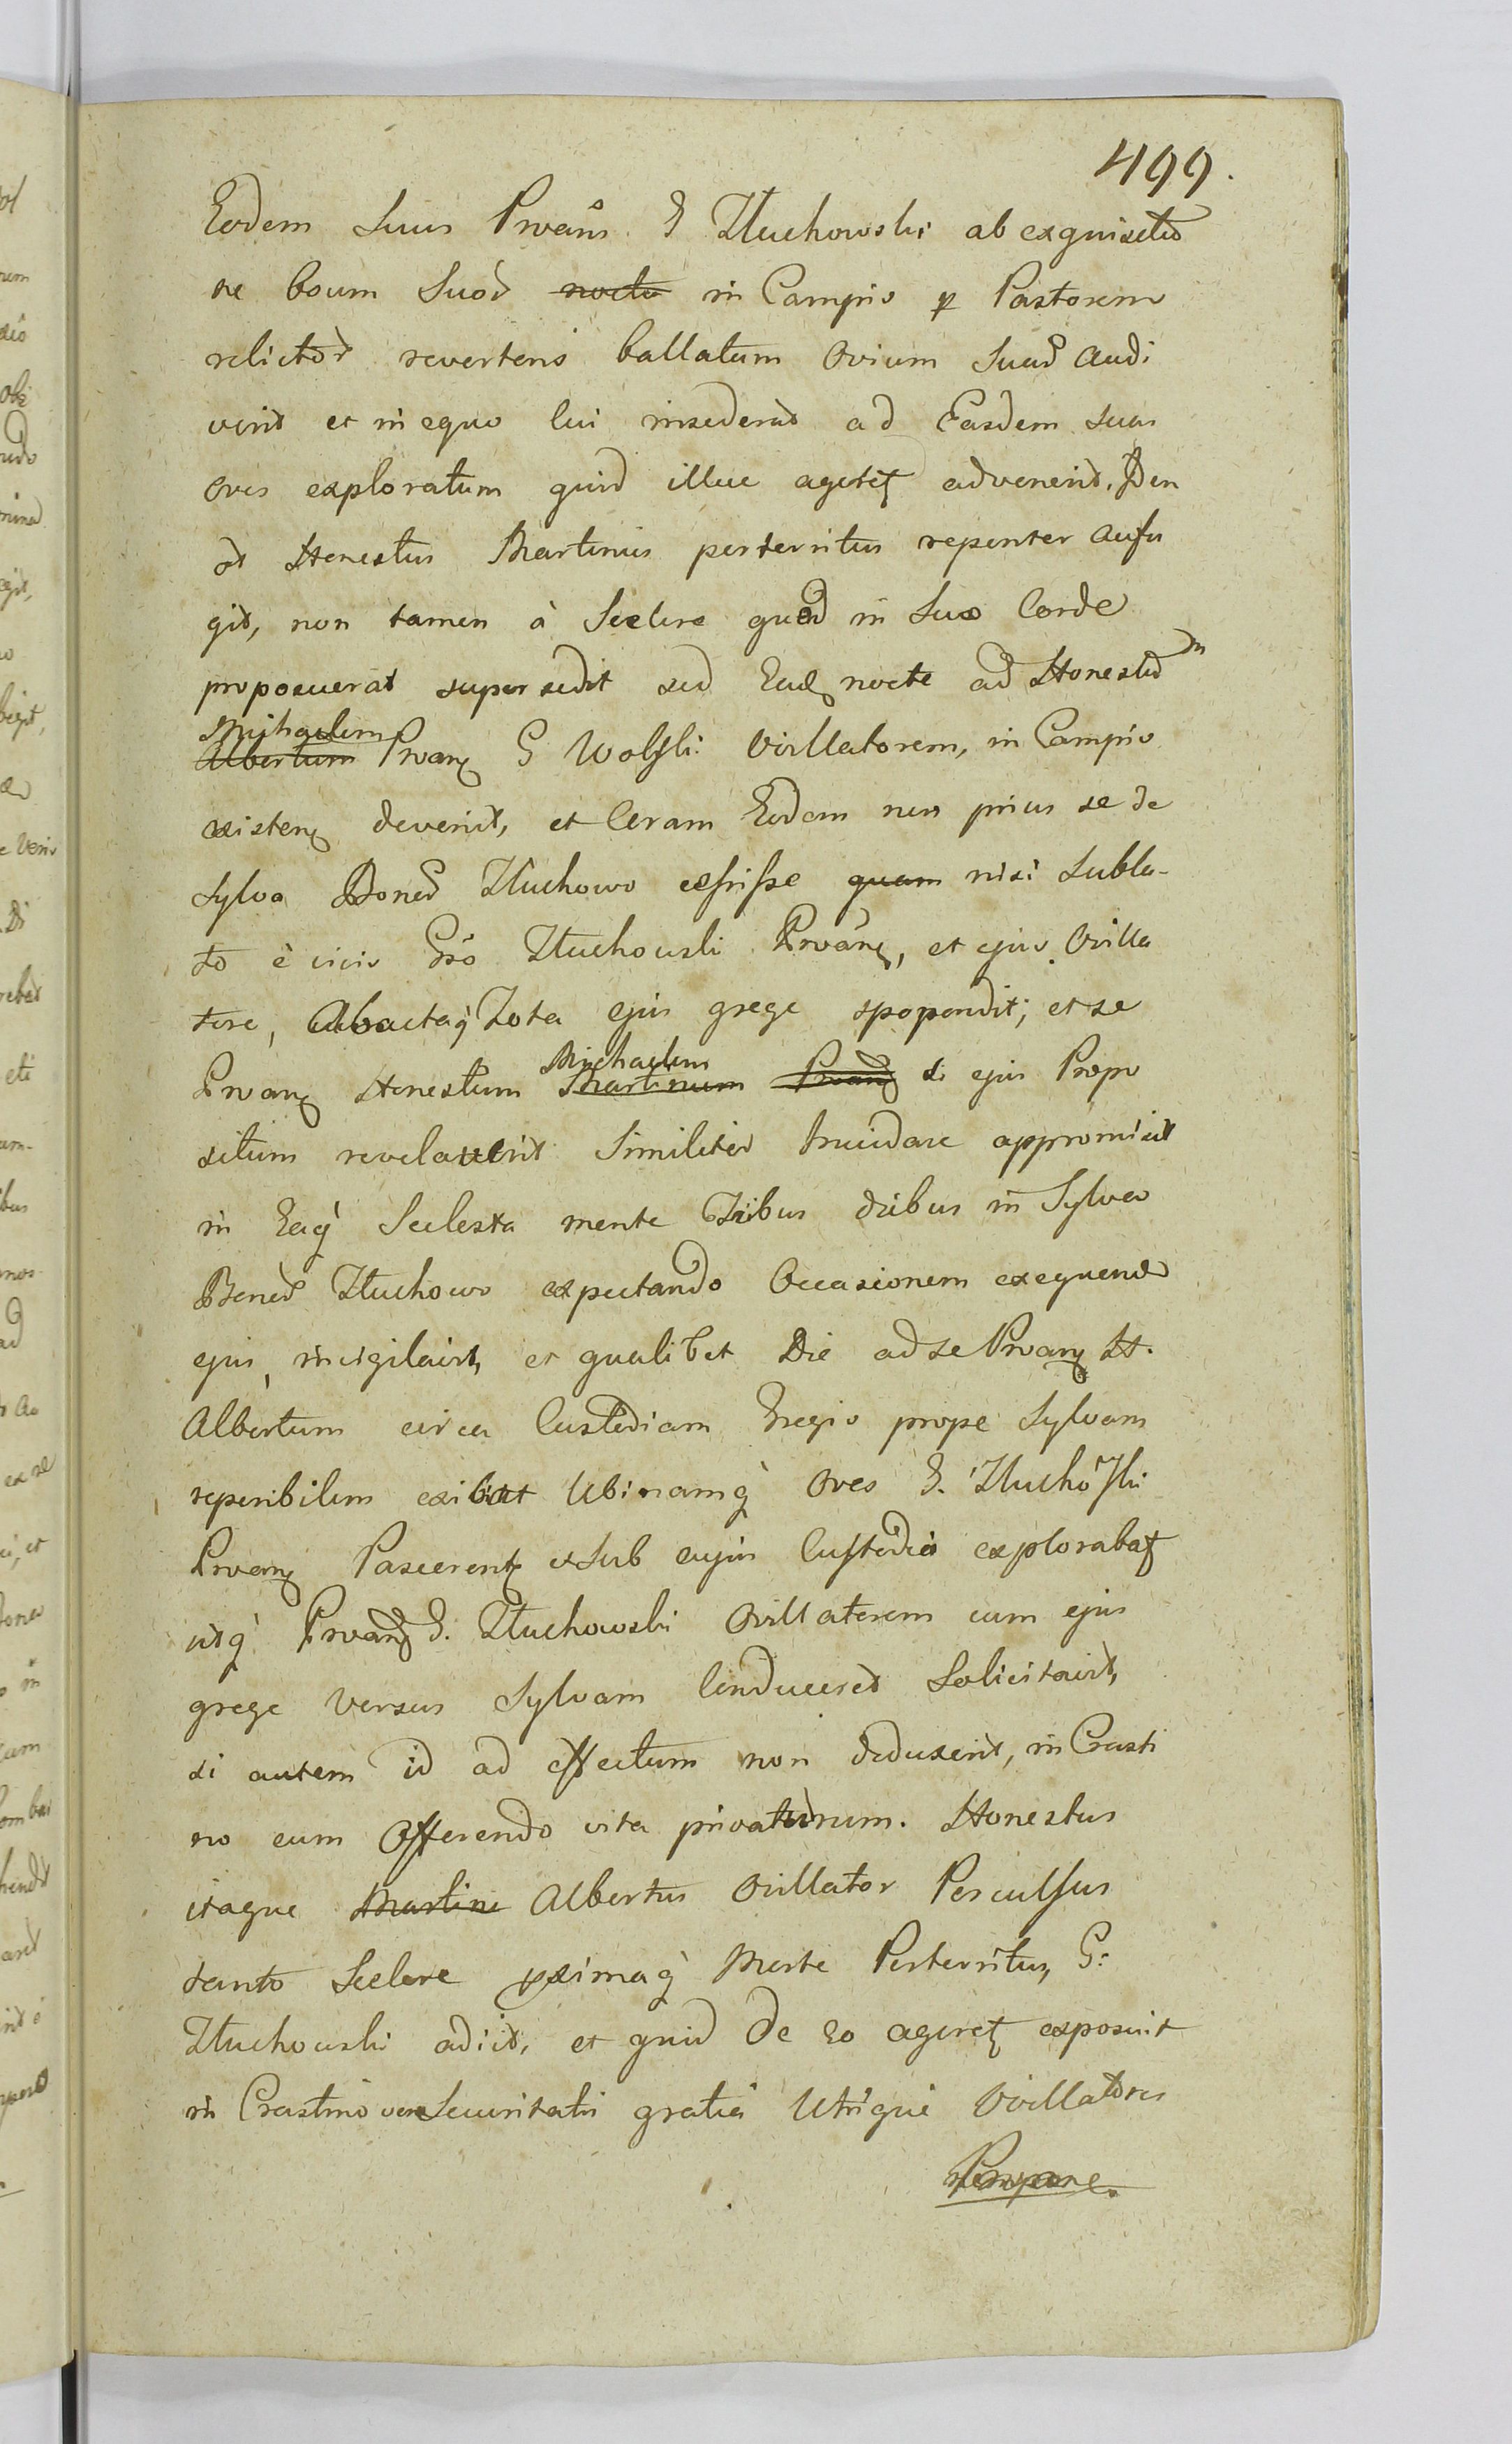 499.
Eodem Suus Prvańs G Tłuchowski ab exquisitio
ne boum Suoȓ nocto in Campis p Pastorem
relictoȓ revertens ballatum Ovium Suaȓ audi
verit et in equo cui insederat ad Easdem suas
oves exploratum quid illuc agetet̨ advenerit.
at Honestus Martinus perterritus repenter aufu
git, non tamen à Scelere quod in Suo Corde
proposuerat supersedit sed Ead nocte ad Honestum
Michaelem
Albertum Prvan G Wolski Ovillatorem, in Campis
existen devenit, et Coram Eodem non prius se de
Sylva Bonoȓ Tłuchowo exiisse quam nisi Subla-
to è vivis Gso Tłuchowski Prvān, et ejus Ovilla
tore, Abactaq̀ Tota ejus grege spopondit; et se
Michaelem
Prvan Honestum Martinum Prvan si ejus Propo
situm revelaverit Similiter trucidare appromisit
in Eaq̀ Scelesta mente Tribus diebus in Sylva
Bonoȓ Tłuchowo expectando Occasionem exequend
ejus, invigilavit, et qualibet Die ad se Prvan H.
Albertum circa Custodiam Gregis prope Sylvam
reperibilem exibat Ubinamq̀ Oves G. Tłuchoski
Prvan Pascerent et Sub cujus Custodia explorabat
utq̀ Prvan G. Tłuchowski Ovillatorem cum ejus
grege versus Sylvam Conduceret Solicitavit,
si autem id ad effectum non deduxerit, in Crasti
no eum Offerendo vita privaturum. Honestus
itaque Martinu Albertus Ovillator Perculsus
tanto Scelere pximaq̀ Morte Perterritus, G:
Tłuchowski adiit, et quid de Eo ageret exposuit
in Crastino vero Securitatis gratia Utrique Ovillatores